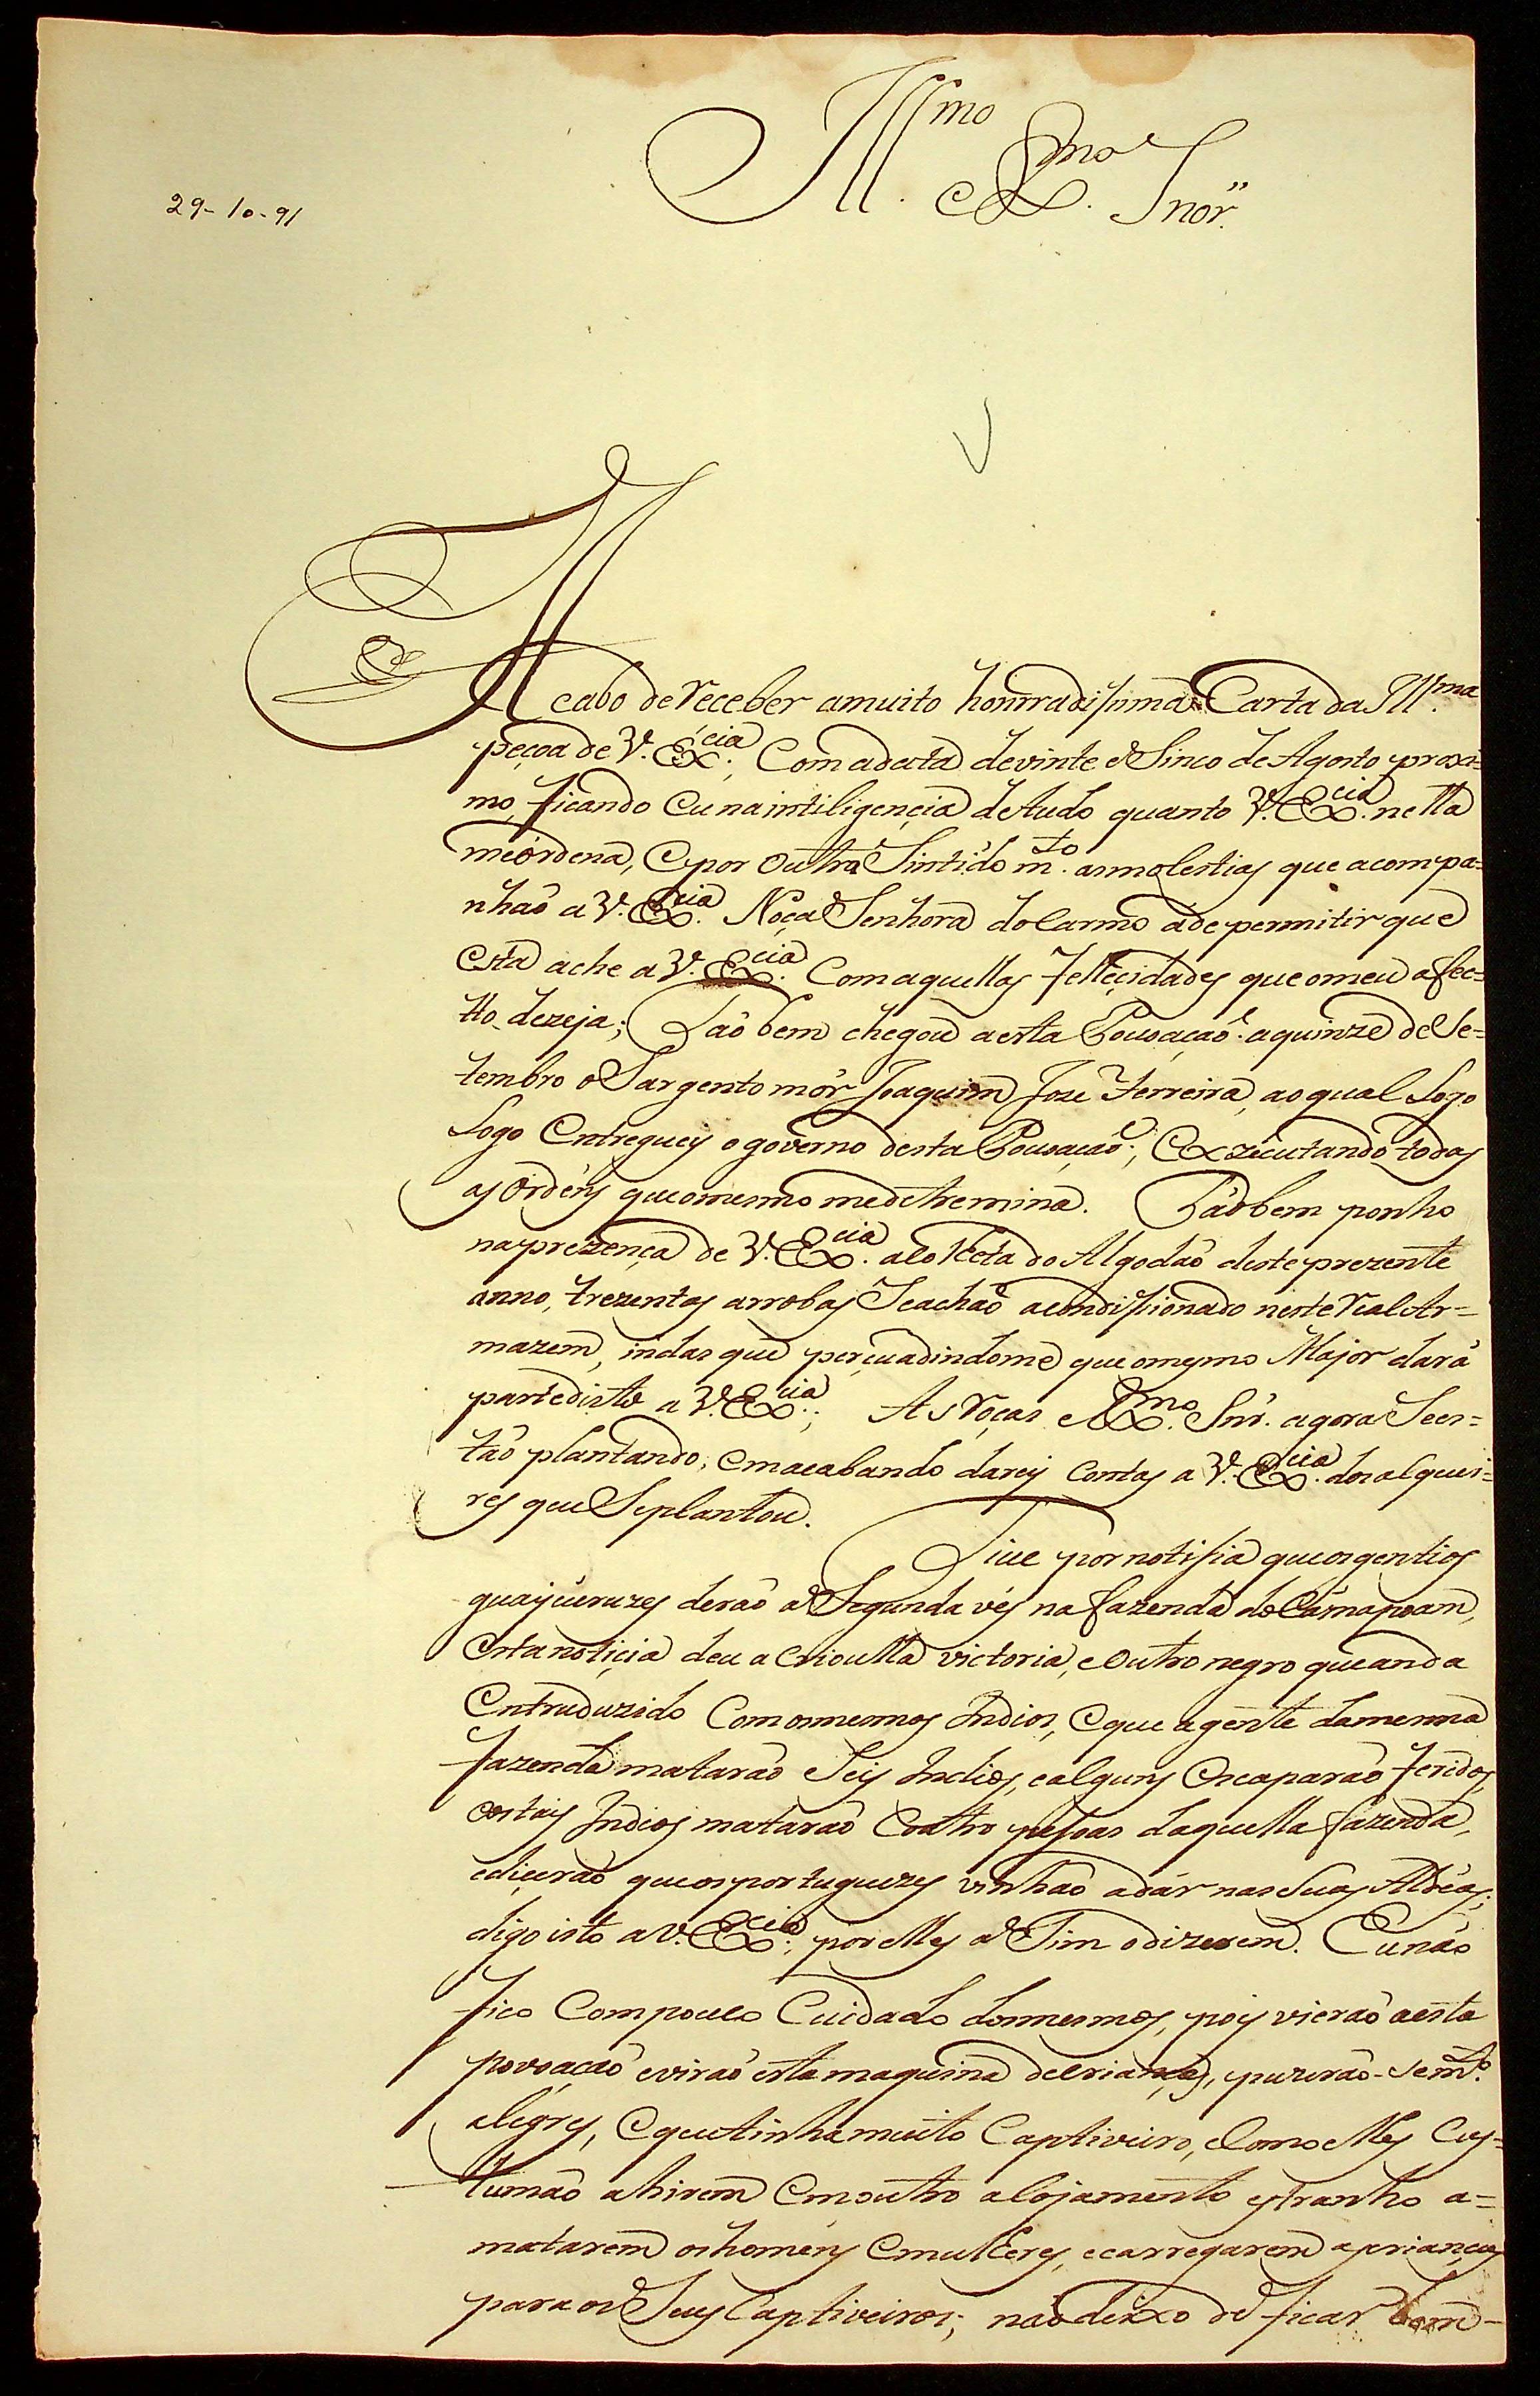 Ill.mo Ex.mo Snor.
29-10-91
Acabo de receber a muito honrradissima Carta da Ill.ma
peçoa de V. Ex.cia, Com a data de vinte e Sinco de Agosto proxi=
mo, ficando Eu na intiligençia de tudo quanto V. Ex.cia nella
me ordena, e por outra Sintido m.to as molestias que acompa=
nhaõ a V. Ex.cia Noça Senhora do Carmo á de permitir que
esta ache a V. Ex.cia Com aquellas felleçidades que o meu afec=
tto dezeja; Taõ bem chegou a esta Pouoaçaõ a quinze de Se=
tembro o Sargento mór Joaquim Jose Ferreira, ao qual Logo
Logo Entreguey o governo desta Pouoaçaõ, Exzecutando todas
as Ordens que o mesmo me detremina. Taõ bem ponho
na prezença de V. Ex.cia a Colheta do Algodaõ deste prezente
anno, trezentas arrobas Se achaõ acondissionado neste Real Ar=
mazem, indas que perçuadindome que o mesmo Major dará
parte disto a V. Ex.cia; As Roças Ex.mo Snr. agora Se es=
taõ plantando, em acabando darey Contas a V. Ex.cia dos alquei=
res que Se plantou.
Tiue por notisia que os gentios
guaycuruzes deraõ a Segunda ves na fazenda do Camapoam,
Esta notiçia deu a Crioulla victoria, e Outro negro que anda
Entruduzido Com os mesmos Indios, e que a gente da mesma
fazenda mataraõ Seis Indios, e alguns Escaparaõ feridos,
e os tais Indios mataraõ Coatro pessoas daquella fazenda,
e diçeraõ que os portuguezes vinhaõ a dár nas Suas Aldeas;
digo isto a V. Ex.cia, por elles aSim o dizerem. Eu naõ
fico Com pouco Cuidado dos mesmos, pois vieraõ a esta
povoaçaõ e viraõ esta maquina de crianças, puzeraõ-se m.to
alegres, e que tinha muito Captiveiro, e Como elles Cus=
tumaõ a hirem em outro alojamento estranho a=
matarem os homens e mulheres, e carregarem as crianças
para os Seus Captiveiros; naõ deixo de ficar Com-